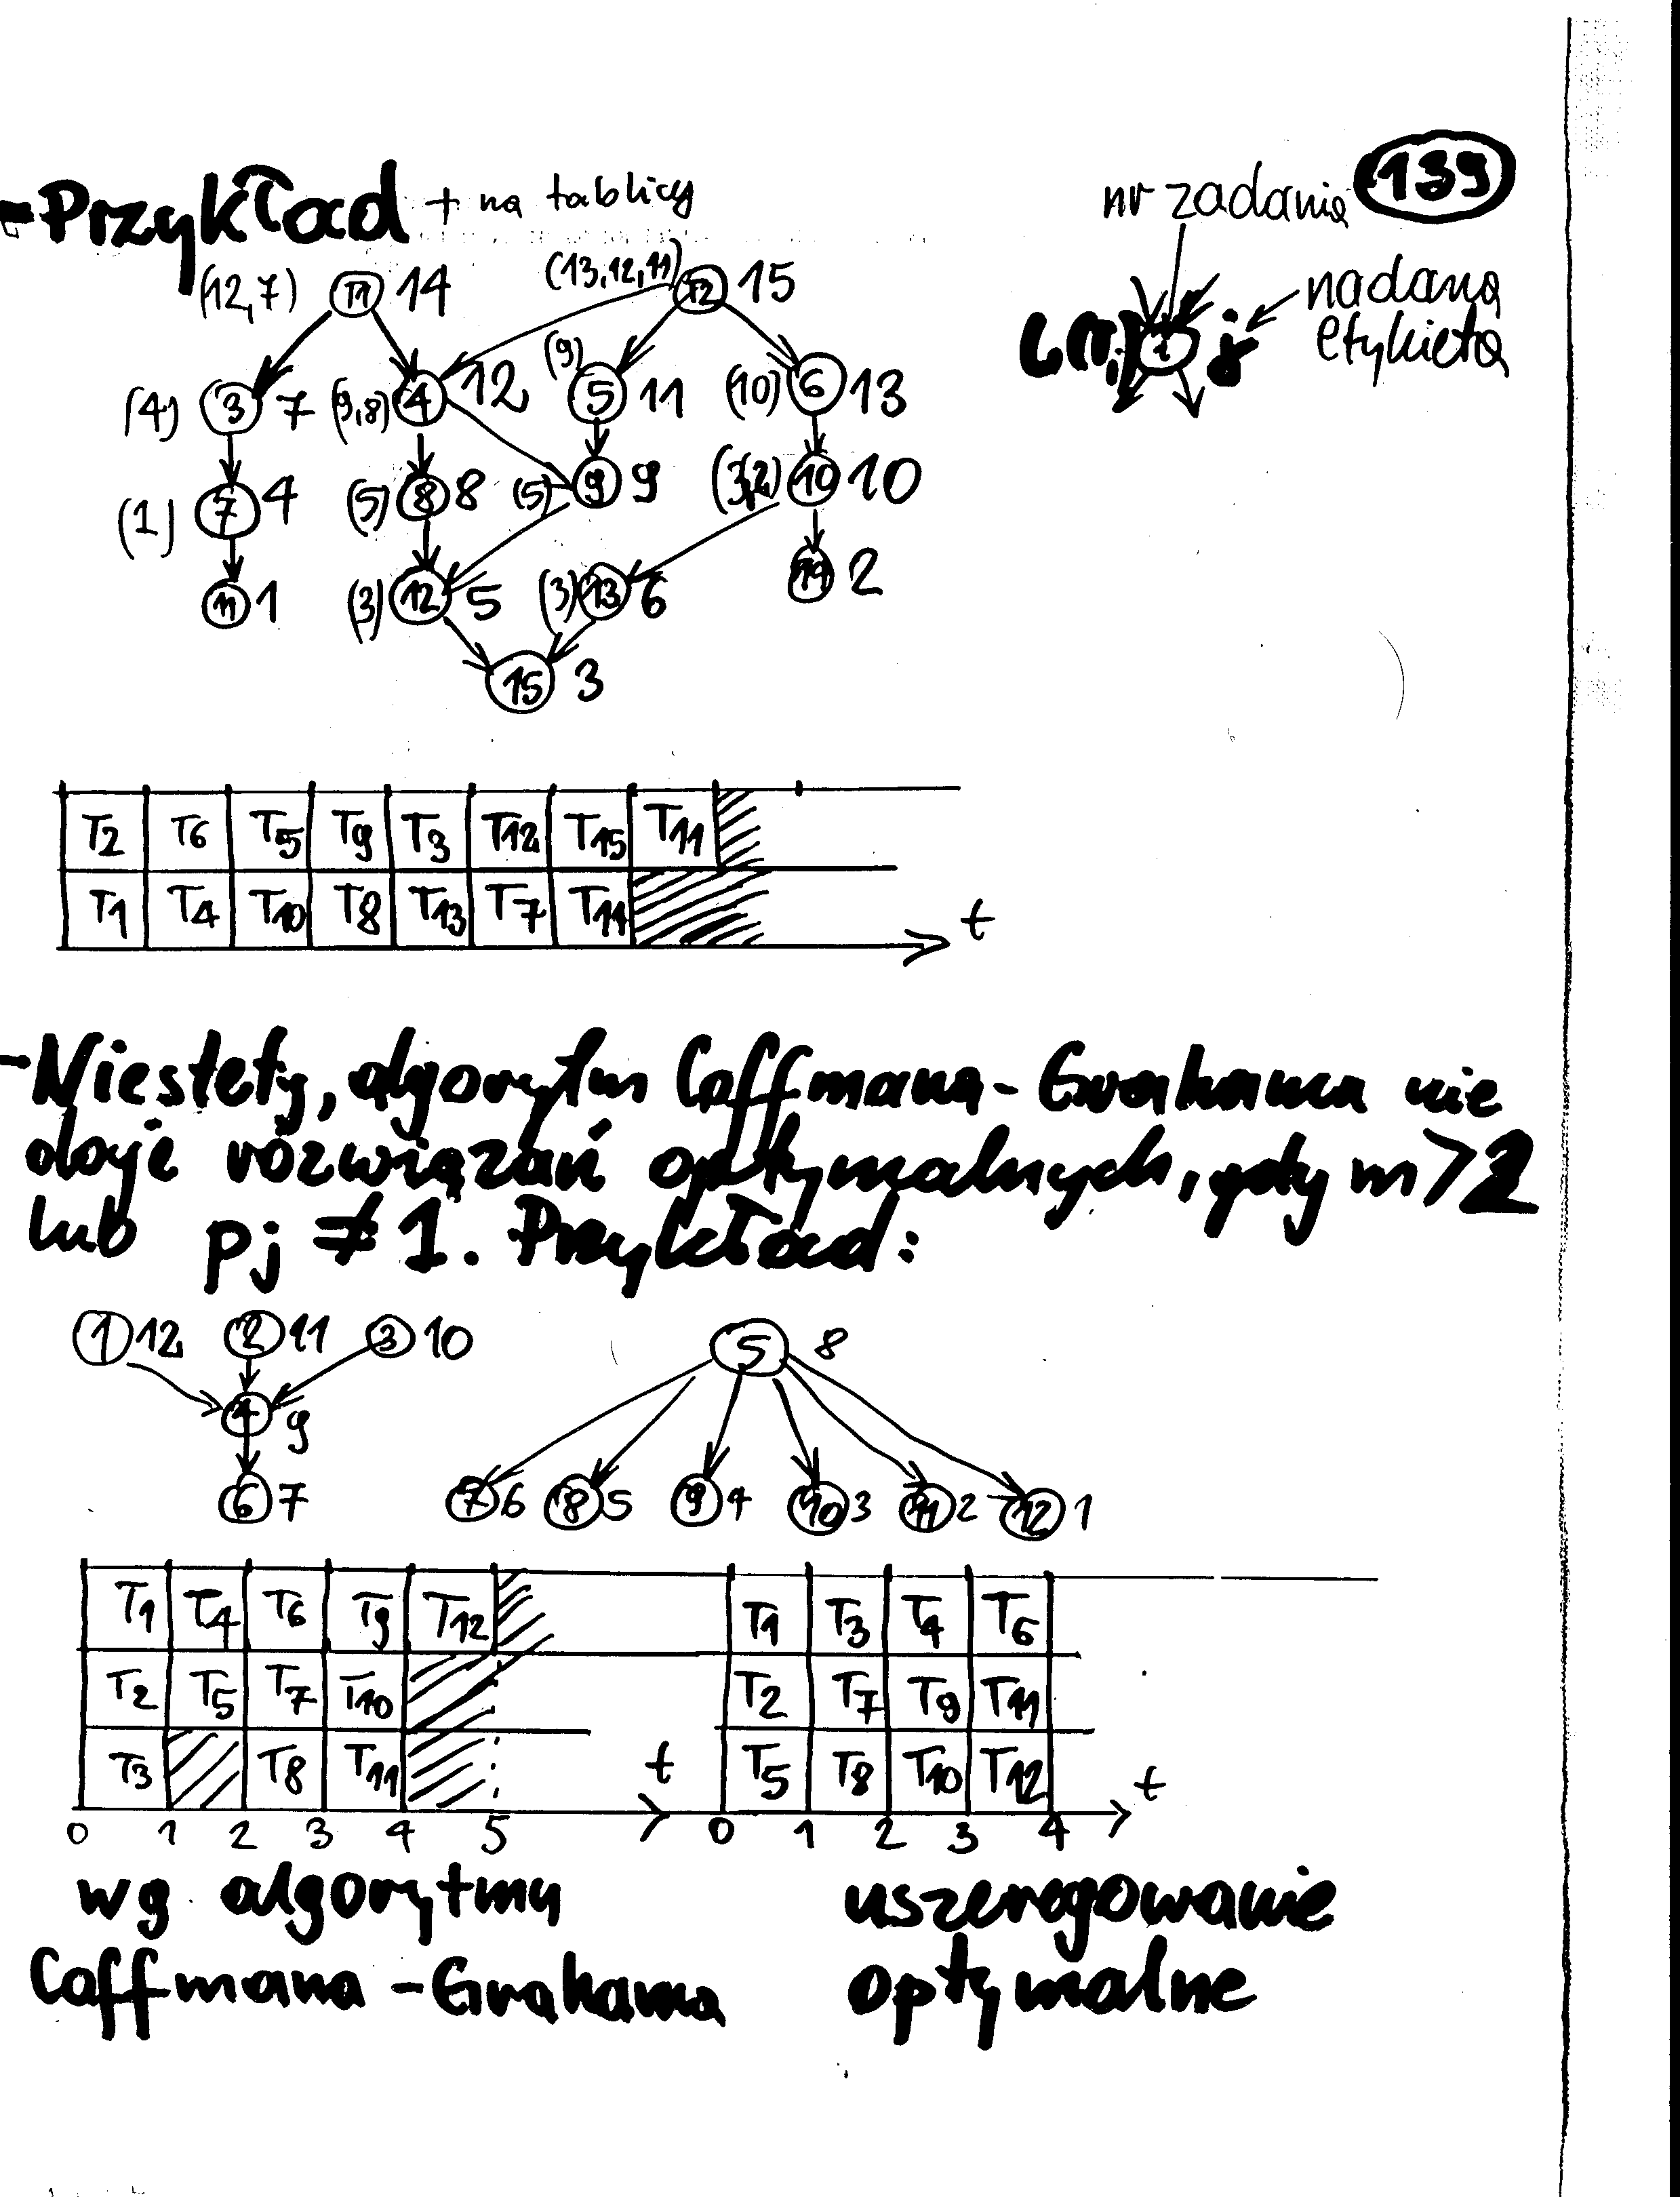 139
- Przykład + na tablicy
nr zadania
nadana
etykieta
i j
(12,7) T1 14 (13,12,11) T2 15
(4) 3 7 (9,8) 4 12 (9) 5 11 (10) 6 13
(1) 7 4 (5) 8 8 (5) 9 9 (3,2) 10 10
11 1 (3) 12 5 (3) 13 6 14 2
15 3
T2 T6 T5 T9 T3 T12 T15 T11
T1 T4 T10 T8 T13 T7 T14
t
- Niestety, algorytm Coffmana-Grahama nie
daje rozwiązań optymalnych, gdy m>2
lub pj ≠ 1. Przykład:
1 12 2 11 3 10 5 8
4 9
6 7 7 6 8 5 9 4 10 3 11 2 12 1
T1 T4 T6 T9 T12 T1 T3 T4 T6
T2 T5 T7 T10 T2 T7 T9 T11
T3 T8 T11 t T5 T8 T10 T12 t
0 1 2 3 4 5 0 1 2 3 4
wg algorytmu uszeregowanie
Coffmana-Grahama optymalne